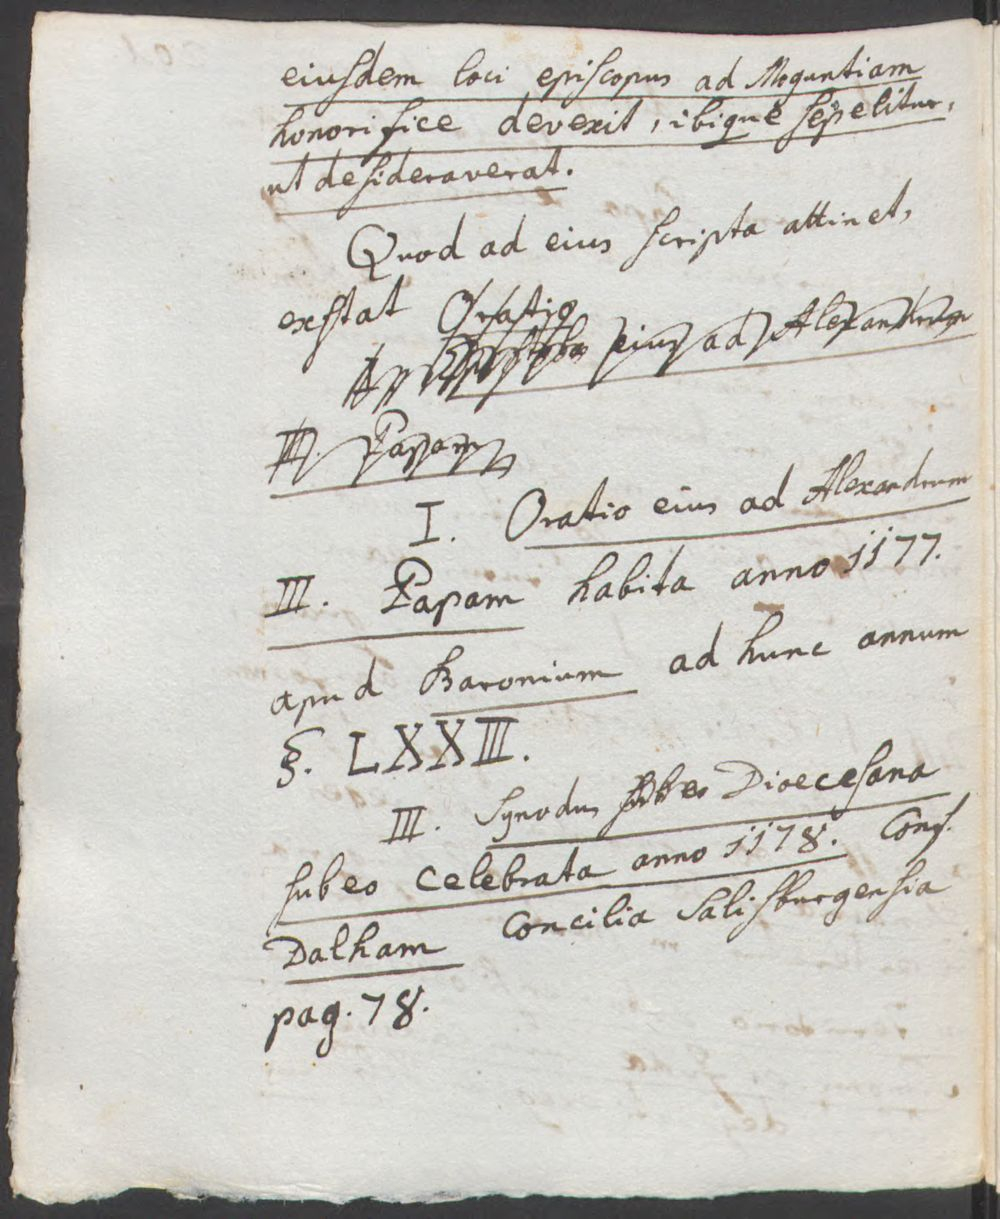 eiusdem loci episcopus ad Moguntiam
honorifice devexit, ibique sepelitur,
ut desideraverat.
Quod ad eius scripta attinet,
exstat Oratio
eius ad Alexandrum
III. Papam
I. Oratio eius ad Alexandrum
III. Papam habita anno 1177.
apud Baronium ad hunc annum
§. LXXIII.
III. Synodus sub eo Dioecesana
sub eo celebrata anno 1178. Conf.
Dalham Concilia Salisburgensia
pag. 78.